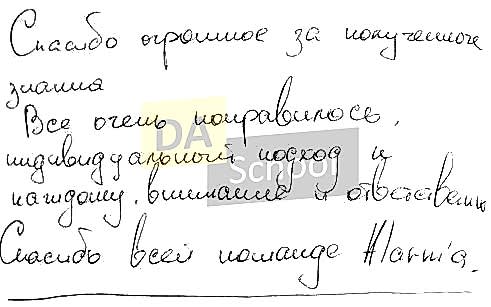 Спасибо огромное за полученное
знания
Все очень понравилось,
индивидуальный подход к
каждому, внимание и ответственно
Спасибо всей команде Marnia.
DA
School